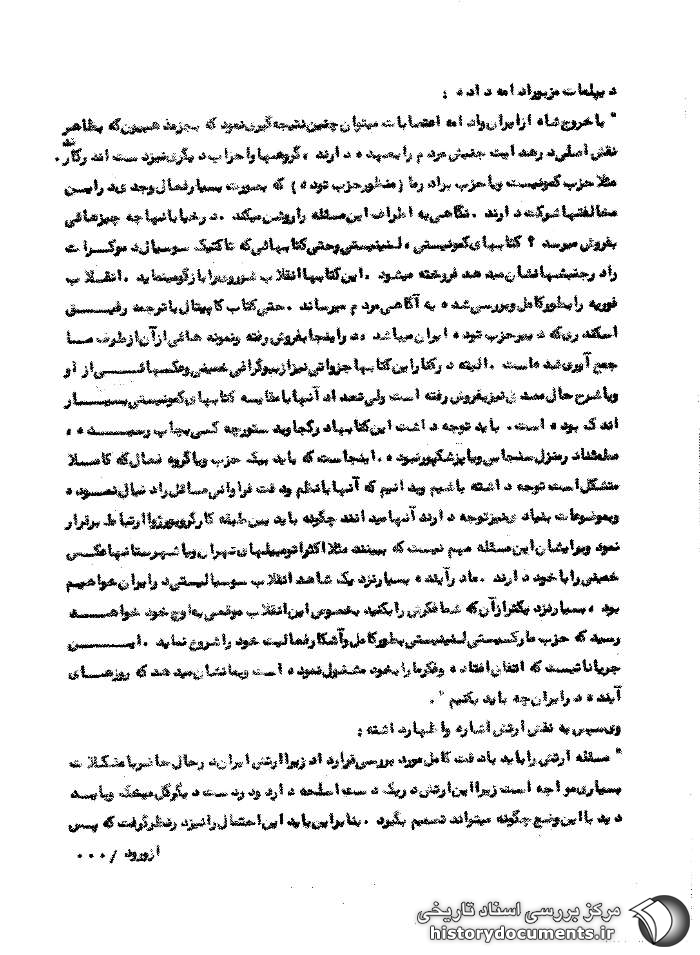 دیپلمات مزبور ادامه داده :
" با خروج شاه از ایران و ادامه اعتصابات میتوان چنین نتیجه گیری نمود که بجز مذهبیون که بظاهر
نقش اصلی در هدایت جنبش مردم را بعهده دارند ، گروهها و احزاب دیگری نیز دست اندرکارند .
مثلا حزب کمونیست و یا حزب برادر ما (منظور حزب توده) که بصورت بسیار فعال و جدی در این
مخالفتها شرکت دارند . نگاهی به اطراف این مسئله را روشن میکند . در خیابانها چه چیزهائی
بفروش میرسد ؟ کتابهای کمونیستی ، لنینیستی و حتی کتابهائی که تاکتیک سوسیال دموکرات
را در جنبشها نشان میدهد فروخته میشود . این کتابها انقلاب شوروی را بازگو مینماید . انقلاب
فوریه را بطور کامل و بررسی شده به آگاهی مردم میرساند . حتی کتاب کاپیتال با ترجمه رفیق
اسکندری که دبیر حزب توده ایران میباشد در اینجا بفروش رفته و نمونه هائی از آن از طرف ما
جمع آوری شده است . البته در کنار این کتابها جزواتی نیز از بیوگرافی خمینی و عکسهائی از او
و یا شرح حال مصدق نیز بفروش رفته است ولی تعداد آنها با مقایسه کتابهای کمونیستی بسیار
اندک بوده است . باید توجه داشت این کتابها در کجا و بدستور چه کسی بچاپ رسیده ،
مطمئنا در منزل سنجابی و یا پزشکپور نبوده . اینجاست که باید بیک حزب و یا گروه فعال که کاملا
متشکل است توجه داشته باشیم و بدانیم که آنها با نظم و دقت فراوانی مسائل را دنبال نموده
و بموضوعات بنیادی نیز توجه دارند آنها میدانند چگونه باید بین طبقه کارگر و بورژوا ارتباط برقرار
نمود و برایشان این مسئله مهم نیست که ببینند مثلا اکثر اتومبیلهای تهران و یا شهرستانها عکس
خمینی را با خود دارند . ما در آینده بسیار نزدیک شاهد انقلاب سوسیالیستی در ایران خواهیم
بود ، بسیار نزدیکتر از آن که شما فکرش را بکنید بخصوص این انقلاب موقعی به اوج خود خواهد
رسید که حزب مارکسیستی لنینیستی بطور کامل و آشکار فعالیت خود را شروع نماید . این
جریاناتیست که اتفاق افتاده و فکر ما را بخود مشغول نموده است و بما نشان میدهد که روزهای
آینده در ایران چه باید بکنیم " .
وی سپس به نقش ارتش اشاره و اظهار داشته :
" مسئله ارتش را باید با دقت کامل مورد بررسی قرار داد زیرا ارتش ایران در حال حاضر با مشکلات
بسیاری مواجه است زیرا این ارتش در یک دست اسلحه دارد و در دست دیگر گل میخک و باید
دید با این وضع چگونه میتواند تصمیم بگیرد . بنابراین باید این احتمال را نیز در نظر گرفت که پس
از ورود / ۰۰۰
مرکز بررسی اسناد تاریخی
historydocuments.ir